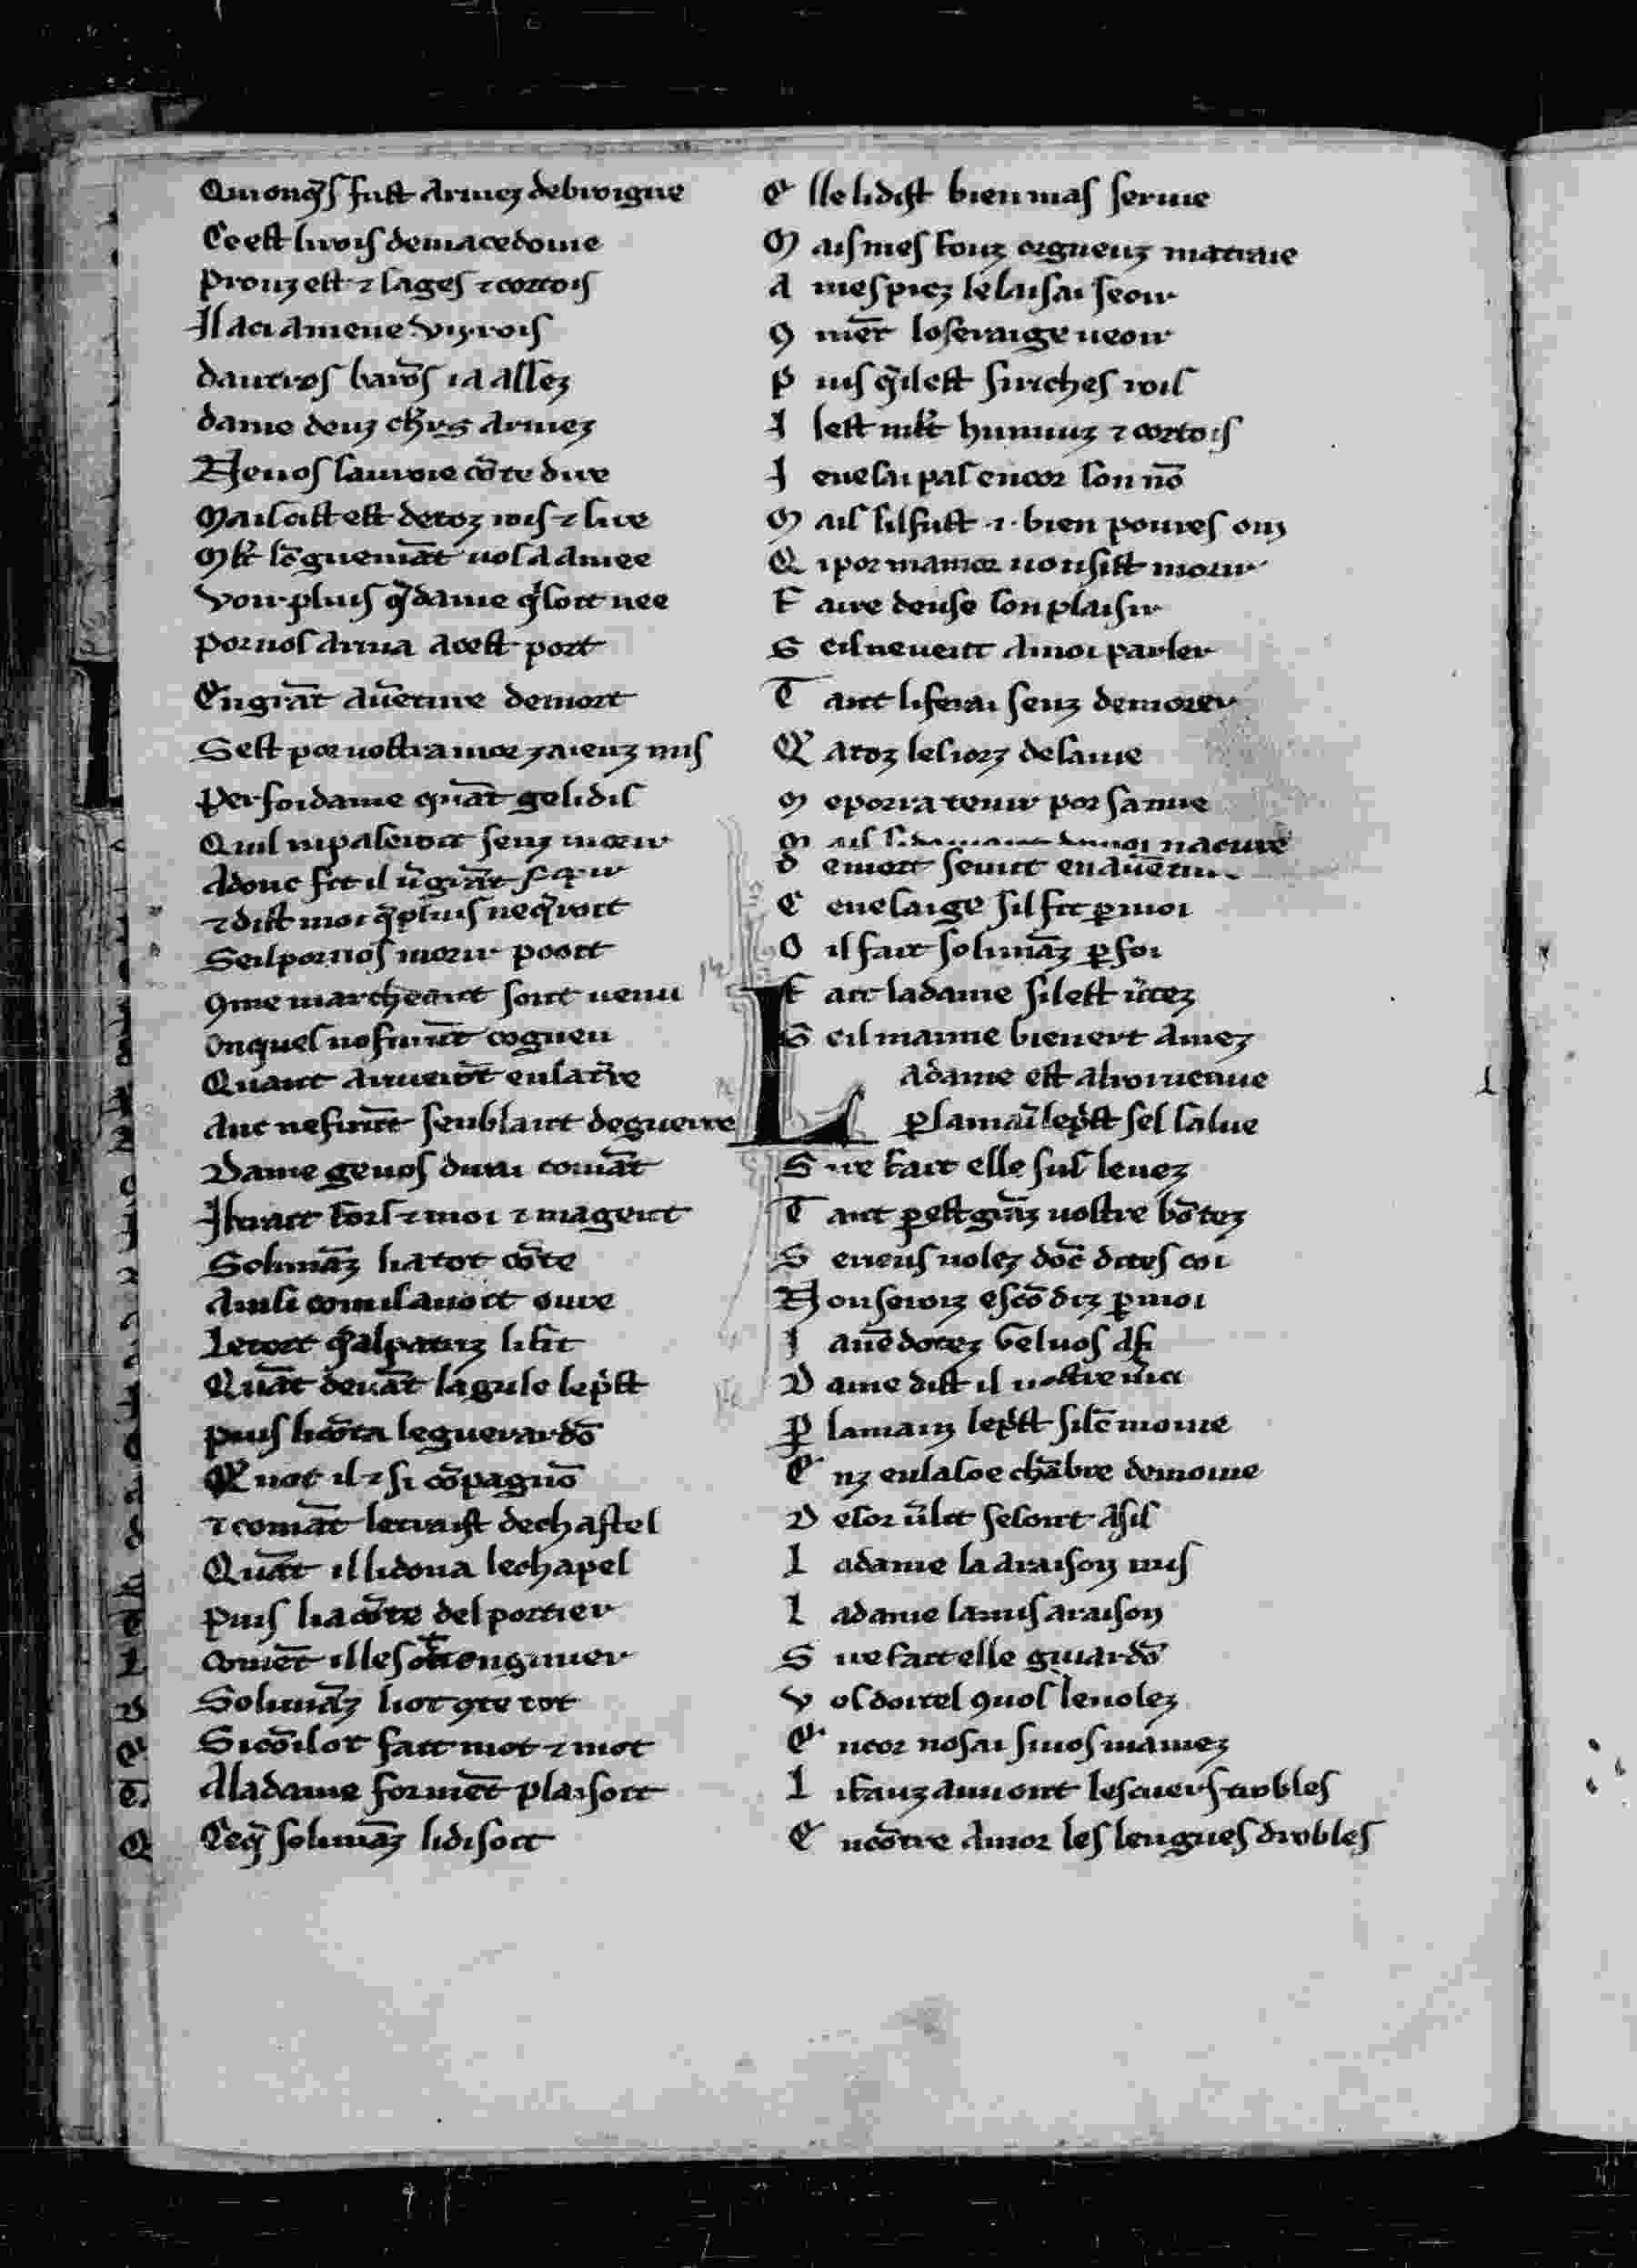 Quionq̄s fust armez debroigne
Ce est li rois de macedoine
Prouz est ⁊ sages ⁊ cortois
Il a ci amene vij rois
dautres barōs i a assez
dame deuz chꝛs armez
Ne uos sauroie cōte dire
Mais cist est de toz rois ⁊ sire
Mlt lōguemāt uos a amee
Voir plus q̄ dame q̄ soit nee
Por uos ariua a cest port
En grāt auēture de mort
Sest por uostramor zaienz mis
Per foi dame quāt ge li dis
Quil ni paseroit senz morir
Adonc fit il .i. grāt sospir
⁊ dist moi q̄ plus ne q̄roit
Seil por uos morir pooit
9me marcheant sont uenu
Onques no furēt cogneu
Quant ariuerōt en la tr̄re
Anc ne firēt senblant de guerre
Dame ge uos dirai comāt
Il uait fors ⁊ moi ⁊ ma gent
Solimāz li a tot cōte
Ainsi com il auoit oure
Le tort q̄ al patriz li fit
Quāt deuāt la gule le pͥst
Puis li cōta le guerardō
Qͥ not il ⁊ si cōpagnō
⁊ comāt le traist de chastel
Quāt il li dona le chapel
Puis li a cōte del portier
Comēt il le sot enginnier
Solimāz li ot 9te tot
Si cō il ot fait mot ⁊ mot
A la dame formēt plaisoit
Ce q̄ solimāz li disoit
E lle li dist bien mas ferme
M ais mes fouz orgueuz matraie
A mes piez le laisai seoir
9 mēt loserai ge ueoir
P uis q̄ il est si riches rois
I l est mlt humius ⁊ cortois
I e ne sai pas encor son nō
M ais sil fust .i. bien poures om
Q i por mamor uousist morir
F aire deuse son plaisir
S eil ne ueut a moi parler
T ant li ferai senz demorer
Qͥ a toz les iorz de sa uie
M e porra tenir por samie
d e mort seuit en auētur
C e ne sai ge sil fit ꝑ moi
O il fait solimāz ꝑ foi
F ait la dame sil est ūtez
S eil maime bien ert amez
L adame est a lui uenue
ꝑ la maī le pͥst sel salue
S ire fait elle sus leuez
T ant ꝑ est grāz uostre bōtez
S e uous uolez dōc dites coi
N ou seroiz escōdiz ꝑ moi
D ame dist il uostre m̄ci
ꝑ la main le pͥst si lē moine
E nz en la soe chābre demoine
D esor .i. lit se sont asis
L adame la araison mis
L adame la mis araison
S ire fait elle guiardō
V os doi tel 9 uos le uolez
E ncor no sai si uos mamez
L i fauz ami ont les cuers trobles
E ncōtre amor les lengues drobles